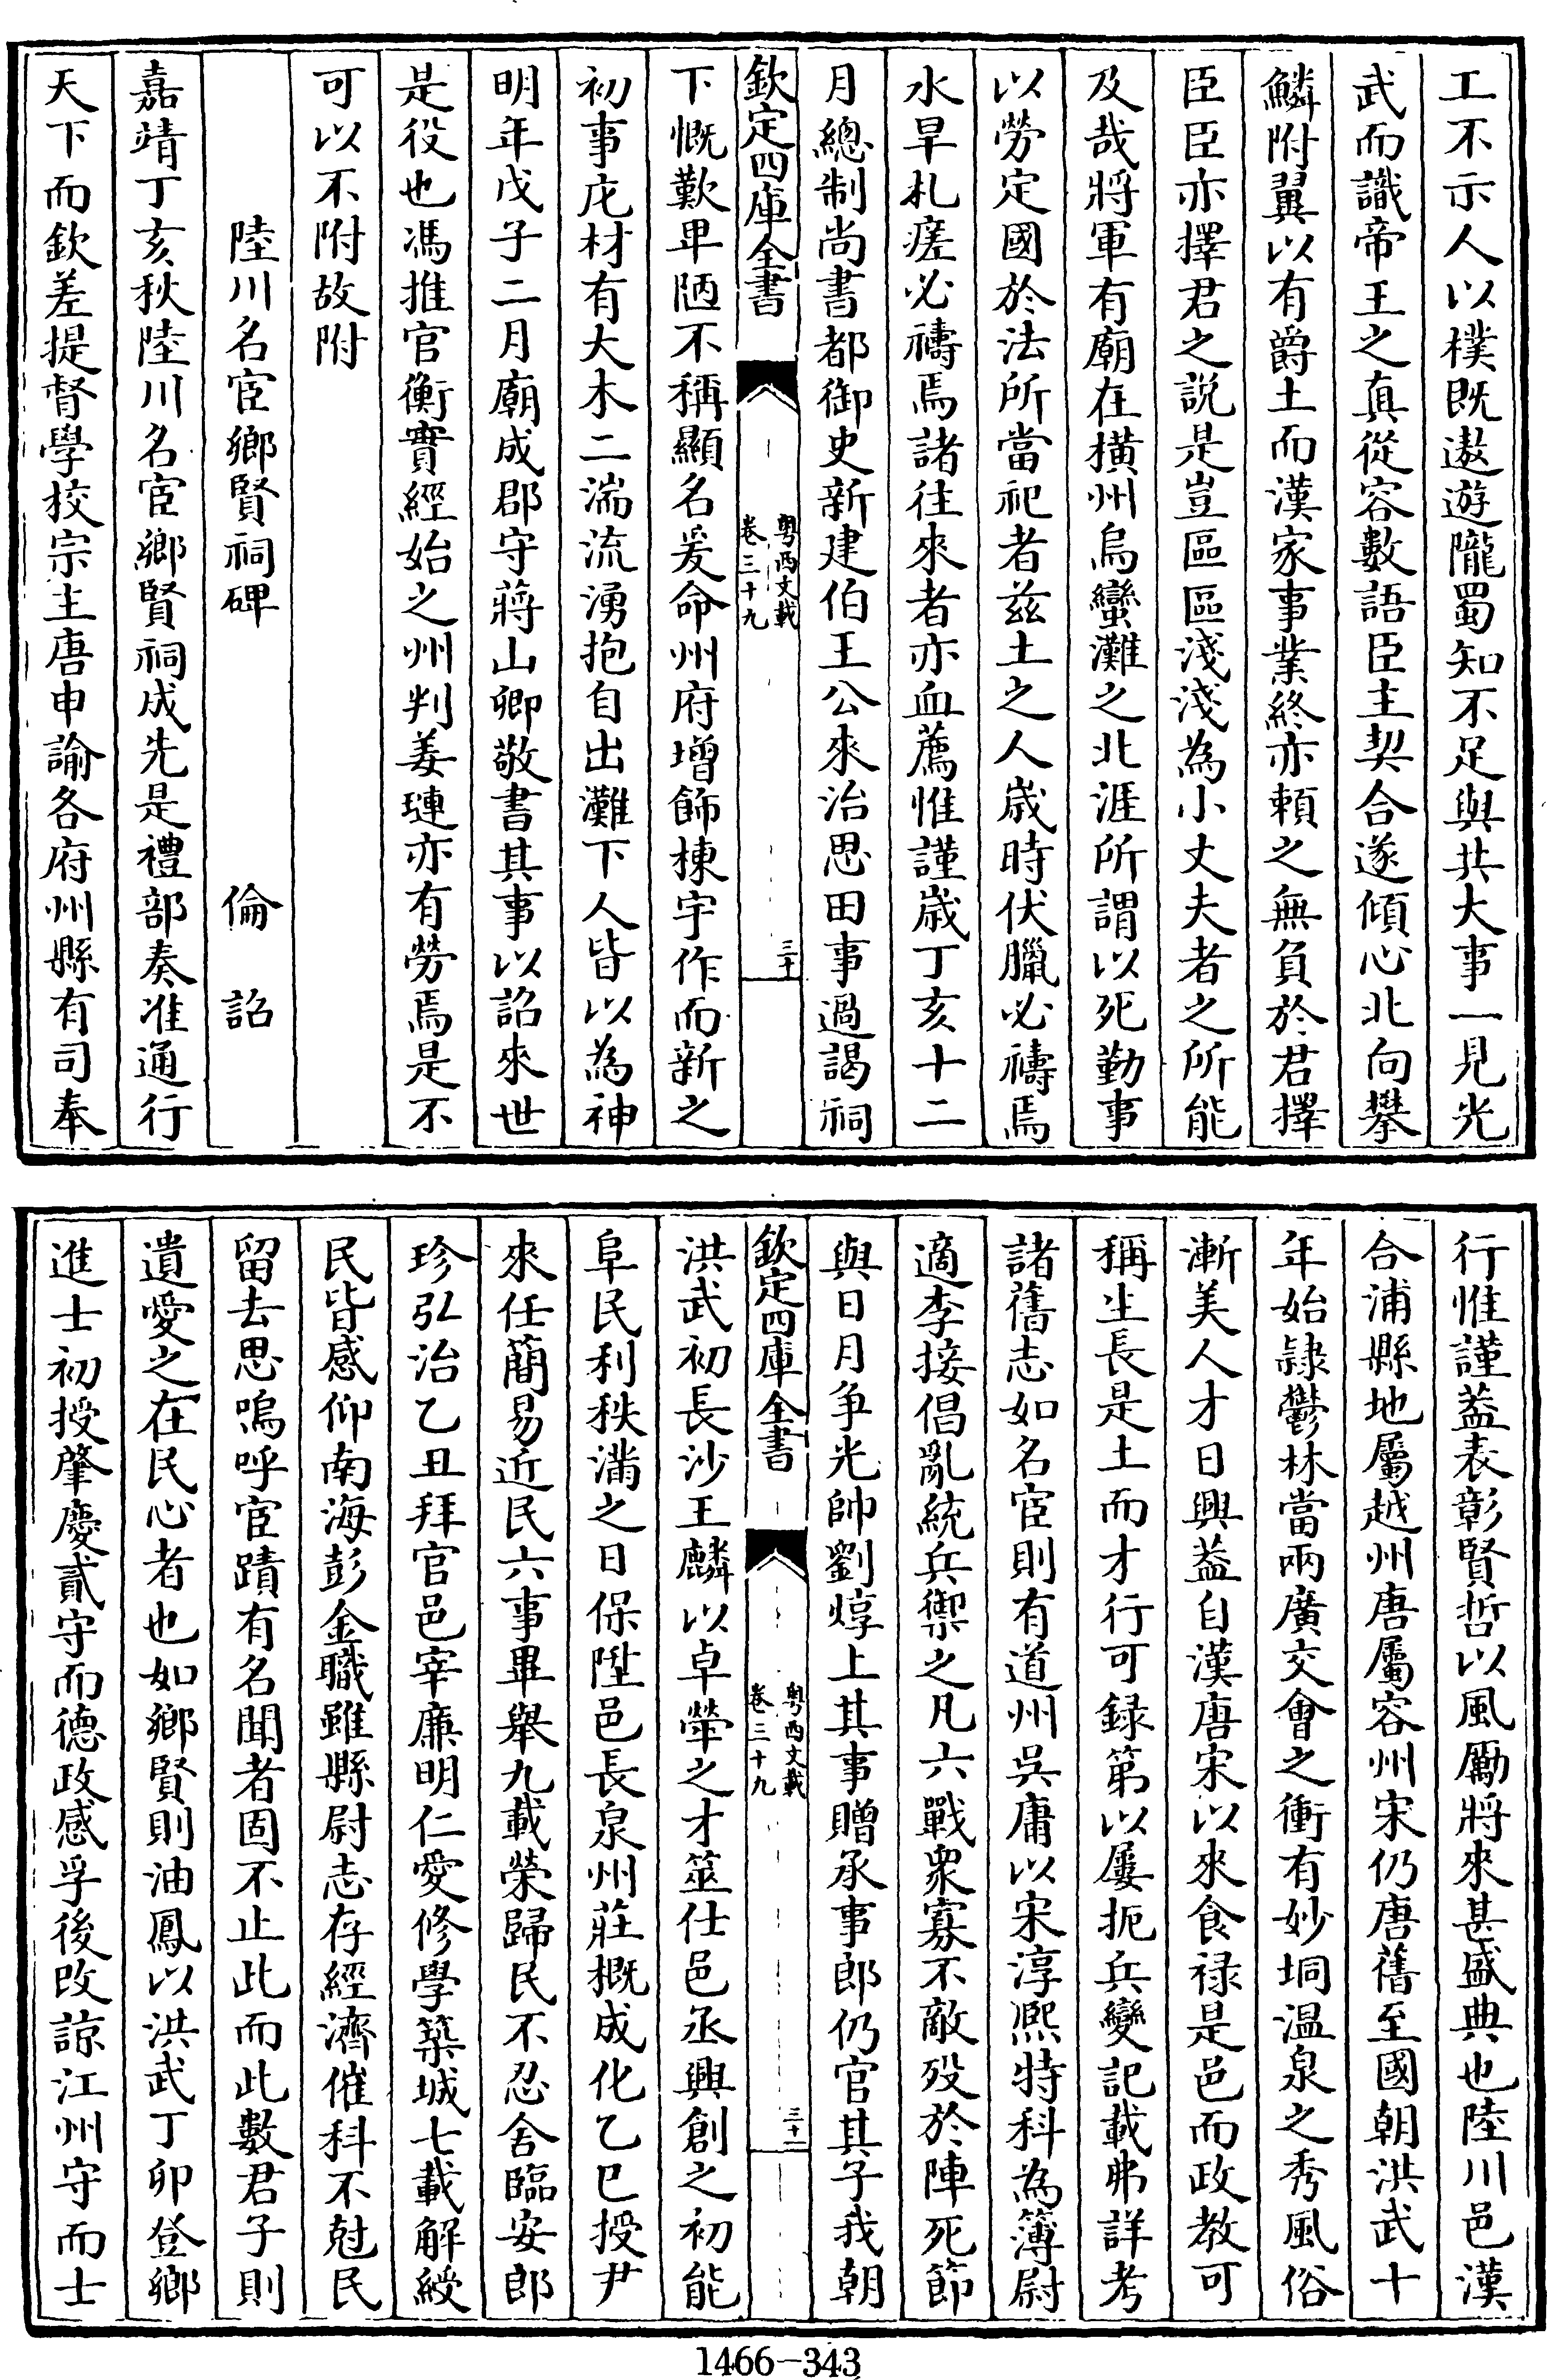 工不示人以樸既遨遊隴蜀知不足與共大事一見光
武而識帝王之真從容數語臣主契合遂傾心北向攀
鱗附翼以有爵土而漢家事業終亦賴之無負於君擇
臣臣亦擇君之説是豈區區淺淺為小丈夫者之所能
及哉將軍有廟在橫州烏蠻灘之北涯所謂以死勤事
以勞定國於法所當祀者兹土之人歲時伏臘必禱焉
水旱札瘥必禱焉諸往來者亦血薦惟謹歲丁亥十二
月總制尚書都御史新建伯王公來治思田事過謁祠
欽定四庫全書
粵西文載
卷三十九
三十
下慨歎卑陋不稱顯名爰命州府增飾棟宇作而新之
初事庀材有大木二湍流湧抱自出灘下人皆以為神
明年戊子二月廟成郡守蔣山卿敬書其事以詔來世
是役也馮推官衡實經始之州判姜璉亦有勞焉是不
可以不附故附
陸川名宦鄉賢祠碑 倫詔
嘉靖丁亥秋陸川名宦鄉賢祠成先是禮部奏准通行
天下而欽差提督學校宗主唐申諭各府州縣有司奉
行惟謹葢表彰賢哲以風勵將來甚盛典也陸川邑漢
合浦縣地屬越州唐屬容州宋仍唐舊至國朝洪武十
年始隷鬱林當兩廣交會之衝有妙峒温泉之秀風俗
漸美人才日興葢自漢唐宋以來食禄是邑而政教可
稱生長是土而才行可録第以屢扼兵變記載弗詳考
諸舊志如名宦則有道州吳庸以宋淳熙特科為簿尉
適李接倡亂統兵禦之凡六戰衆寡不敵殁於陣死節
與日月争光帥劉焞上其事贈承事郎仍官其子我朝
欽定四庫全書
粵西文載
卷三十九
三十一
洪武初長沙王麟以卓犖之才筮仕邑丞興創之初能
阜民利秩滿之日保陞邑長泉州莊概成化乙巳授尹
來任簡易近民六事畢舉九載榮歸民不忍舍臨安郎
珍弘治乙丑拜官邑宰廉明仁愛修學築城七載解綬
民皆感仰南海彭金職雖縣尉志存經濟催科不尅民
留去思嗚呼宦蹟有名聞者固不止此而此數君子則
遺愛之在民心者也如鄉賢則油鳳以洪武丁卯登鄉
進士初授肇慶貳守而德政感孚後改諒江州守而士
1466-343